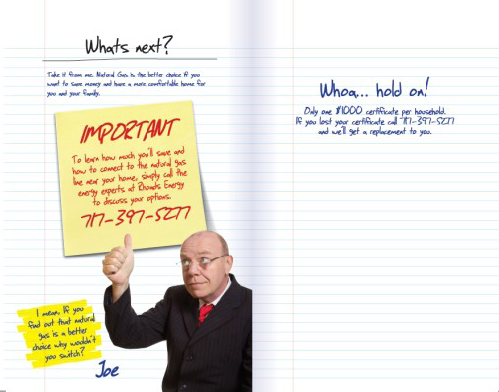 Whats next?
Take it from me. Natural Gas is the better choice if you
want to save money and have a more comfortable home for
you and your family.
IMPORTANT
To learn how much you'll save and
how to connect to the natural gas
line near your home, simply call the
energy experts at Rhoads Energy
to discuss your options.
717-397-5277
I mean, If you
find out that natural
gas is a better
choice why wouldn't
you switch?
Joe
Whoa... hold on!
Only one $1000 certificate per household.
If you lost your certificate call 717-397-5277
and we'll get a replacement to you.